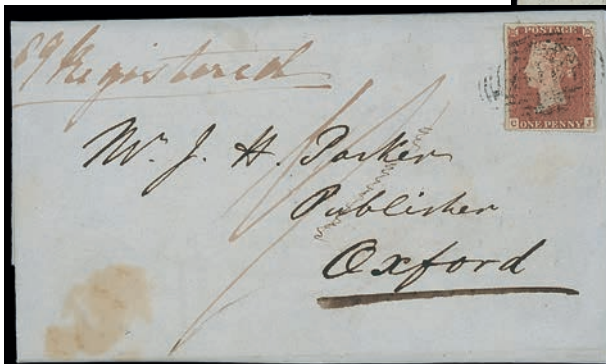 89 Registered
POSTAGE
ONE PENNY
Mr. J. H. Parker
Publisher
Oxford